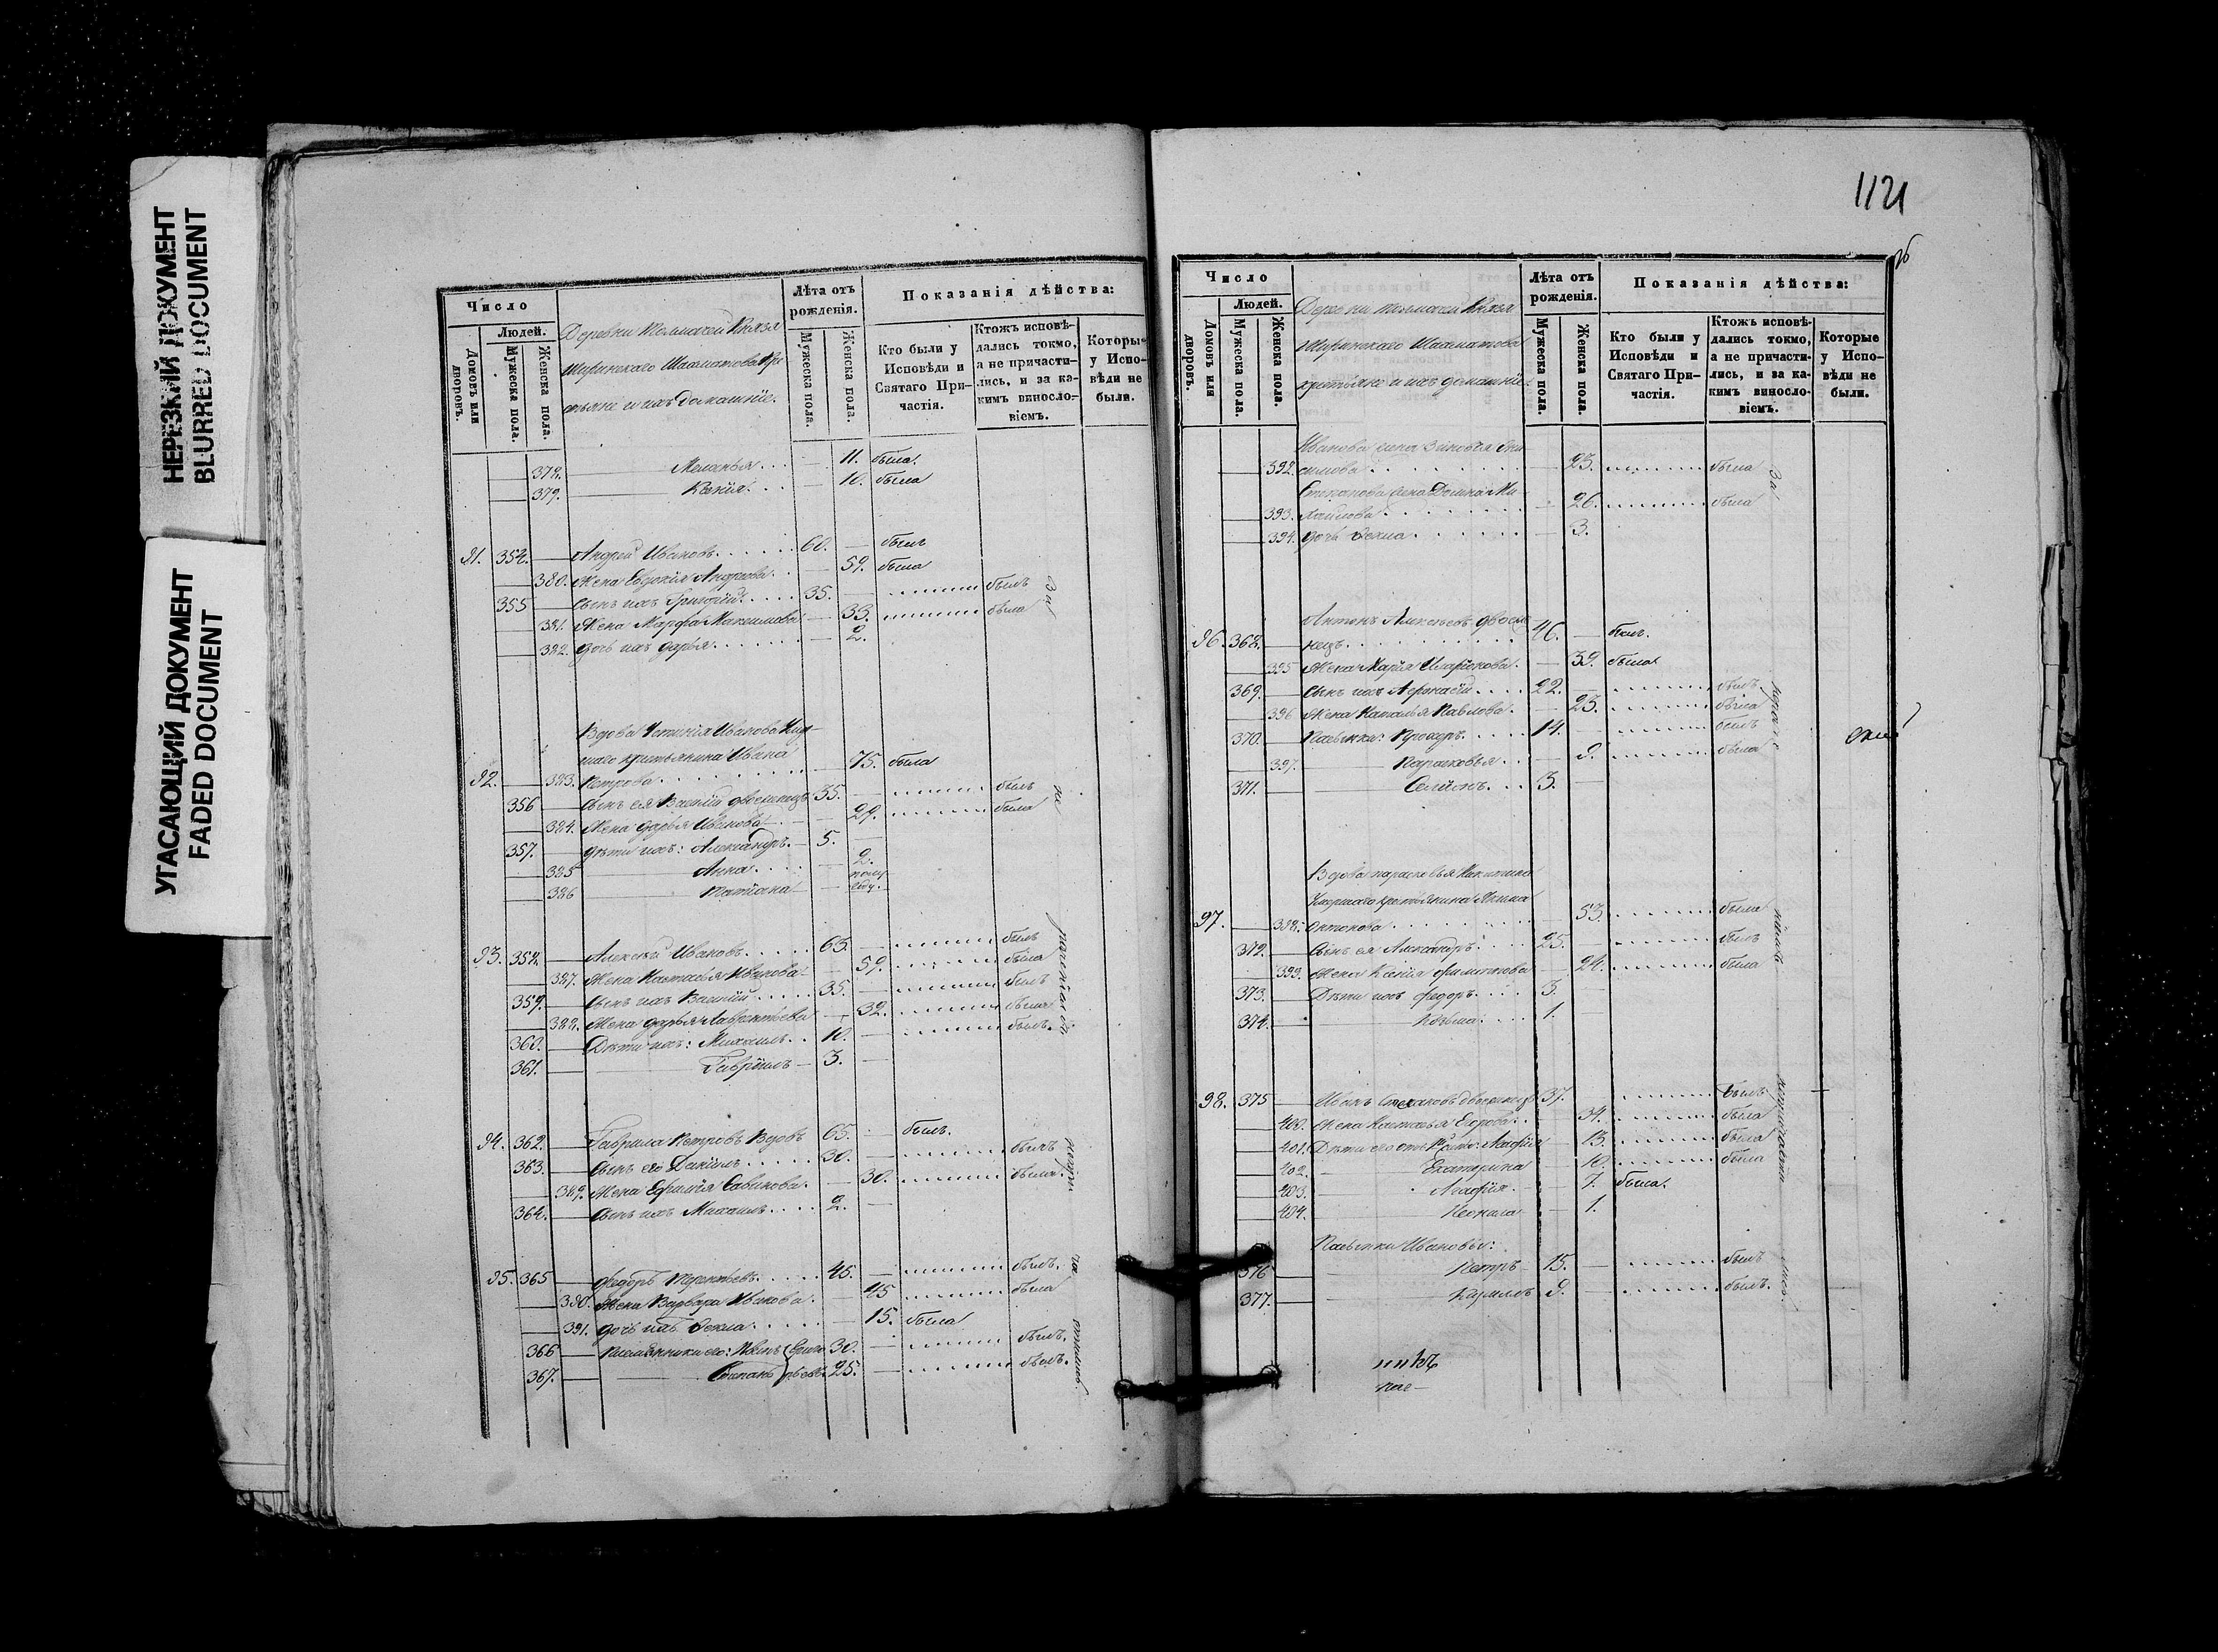 НЕРЕЗКИЙ ДОКУМЕНТ
BLURRED DOCUMENT
УГАСАЮЩИЙ ДОКУМЕНТ
FADED DOCUMENT
Число
Людей.
Домовъ или дворовъ.
Мужеска пола.
Женска пола.
Деревни Князя
Ширинскаго Шахматова кре
стьяне и ихъ домашніе.
Лѣта отъ рожденія.
Мужеска пола.
Женска пола.
Показанія дѣйства:
Кто были у Исповѣди и Святаго При-частія.
Ктожъ исповѣ-дались токмо, а не причасти-лись, и за ка-кимъ винносло-віемъ.
Которые у Испо-вѣди не были.
378. Меланья 11. была.
379. Ксенія 10. была
91. 354. Андрей Ивановъ 60. былъ
380. Жена Евдокія Андреева 59. была
355 Сынъ ихъ Григорій 35. былъ
381. Жена Марфа Максимова 33. была
382. Дочь ихъ Дарья 2.
Вдова Устинія Иванова Умер-
шаго крестьянина Ивана
92. 383. Петрова 75. была
356 Сынъ ея Василій двоеженецъ 35. былъ
384. Жена Дарья Иванова 29. была
357. Дѣти ихъ: Александръ 5.
385 Анна 2.
386 Татіана полу году.
93. 358. Алексѣй Ивановъ 63 былъ
387. Жена Настасья Иванова 59. была
359. Сынъ ихъ Василій 35. былъ
388. Жена Дарья Лаврентьева 32. была
360. Дѣти ихъ: Михаилъ 10. былъ.
361. Гавріилъ 3.
94. 362. Гаврила Петровъ Вдовъ 65. былъ.
363. Сынъ его Даніилъ 30. былъ
389. Жена Ефимія Савинова 30. была.
364. Сынъ ихъ Михаилъ 2.
95. 365 Федоръ Терентьевъ 45. былъ.
390. Жена Варвара Иванова 45 была
391. Дочь ихъ Фекла 15. была
366 Племянники его: Иванъ Григо 30. былъ.
367. Степанъ рьевы 25. былъ.
За
не
раченіемъ
1121
Число
Людей.
Домовъ или дворовъ.
Мужеска пола.
Женска пола.
Деревни Князя
Ширинскаго Шахматова
крестьяне и ихъ домашніе.
Лѣта отъ рожденія.
Мужеска пола.
Женска пола.
Показанія дѣйства:
Кто были у Исповѣди и Святаго При-частія.
Ктожъ исповѣ-дались токмо, а не причасти-лись, и за ка-кимъ винносло-віемъ.
Которые у Испо-вѣди не были.
Иванова жена Зиновья
392. 23. была
Степанова жена Домна Ми
393. хайлова 26. была
394. Дочь Фекла 3.
Антонъ Алексѣевъ двоеже
96. 368. нецъ 46. былъ.
395 Жена Марія Иларіонова 39. была.
369. Сынъ ихъ Афанасій 22. былъ
396 Жена Наталья Павлова 23. была
370. Пасынки: Прохоръ 14. былъ
397. Парасковья 9. была
371. Семіонъ 3.
Вдова Парасковья Никитина
Умершаго крестьянина Якима
97. 398. Антонова 53. была
372. Сынъ ея Александръ 25. былъ
399. Жена Ксенія Филиппова 24. была
373. Дѣти ихъ Федоръ 3.
374. Козьма 1.
98. 375 Иванъ Степановъ двоеженецъ 37. былъ
400. Жена Настасья Егорова 34. была
401. Дѣти его отъ 13. была
402. Екатерина 10. была
403. Агафія 7. была.
404. Неонила 1.
Пасынки Ивановы:
376 Петръ 15. былъ
377. Кириллъ 9. былъ.
За